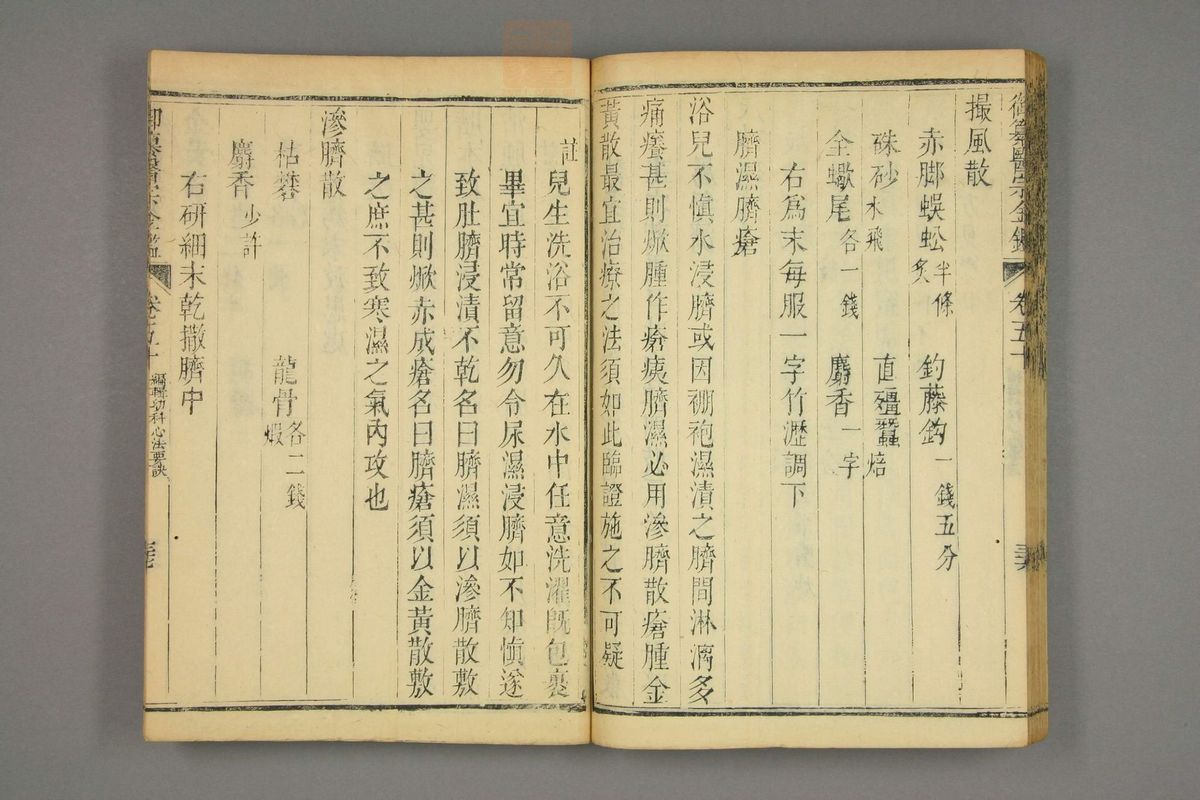 撮風散
赤脚蜈蚣半條炙 釣藤鈎一錢五分
硃砂水飛 直殭蠶焙
全蠍尾各一錢 麝香一字
右爲末每服一字竹瀝調下
臍濕臍瘡
浴兒不愼水浸臍或因襁袍濕漬之臍間淋漓多
痛癢甚則焮腫作瘡痍臍濕必用滲臍散瘡腫金
黃散最宜治療之法須如此臨證施之不可疑
註兒生洗浴不可久在水中任意洗濯旣包裹
畢宜時常留意勿令尿濕浸臍如不知愼遂
致肚臍浸漬不乾名曰臍濕須以滲臍散敷
之甚則焮赤成瘡名曰臍瘡須以金黃散敷
之庶不致寒濕之氣內攻也
滲臍散
枯礬 龍骨各二錢煆
麝香少許
右研細末乾撒臍中
卷五十 編輯幼科心法要訣